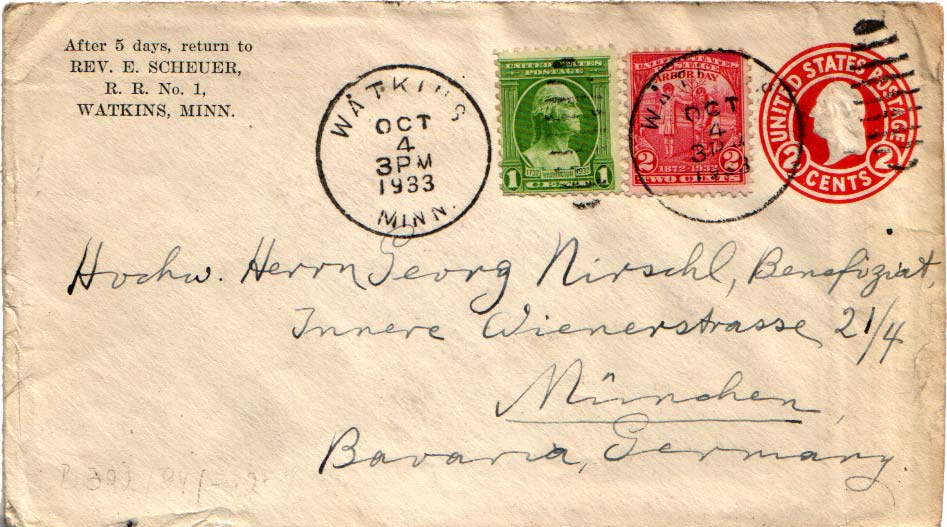 After 5 days, return to
REV. E. SCHEUER,
R. R. No. 1,
WATKINS, MINN.
WATKINS
OCT
4
3PM
1933
MINN.
UNITED STATES
POSTAGE
1732 WASHINGTON 1932
1 CENT 1
UNITED STATES
POSTAGE
ARBOR DAY
2 1872-1932 2
TWO CENTS
OCT
4
UNITED STATES POSTAGE
2 CENTS 2
Hochw. Herrn Georg Nirschl, Benefiziat,
Innere Wienerstrasse 21/4
München,
Bavaria, Germany.